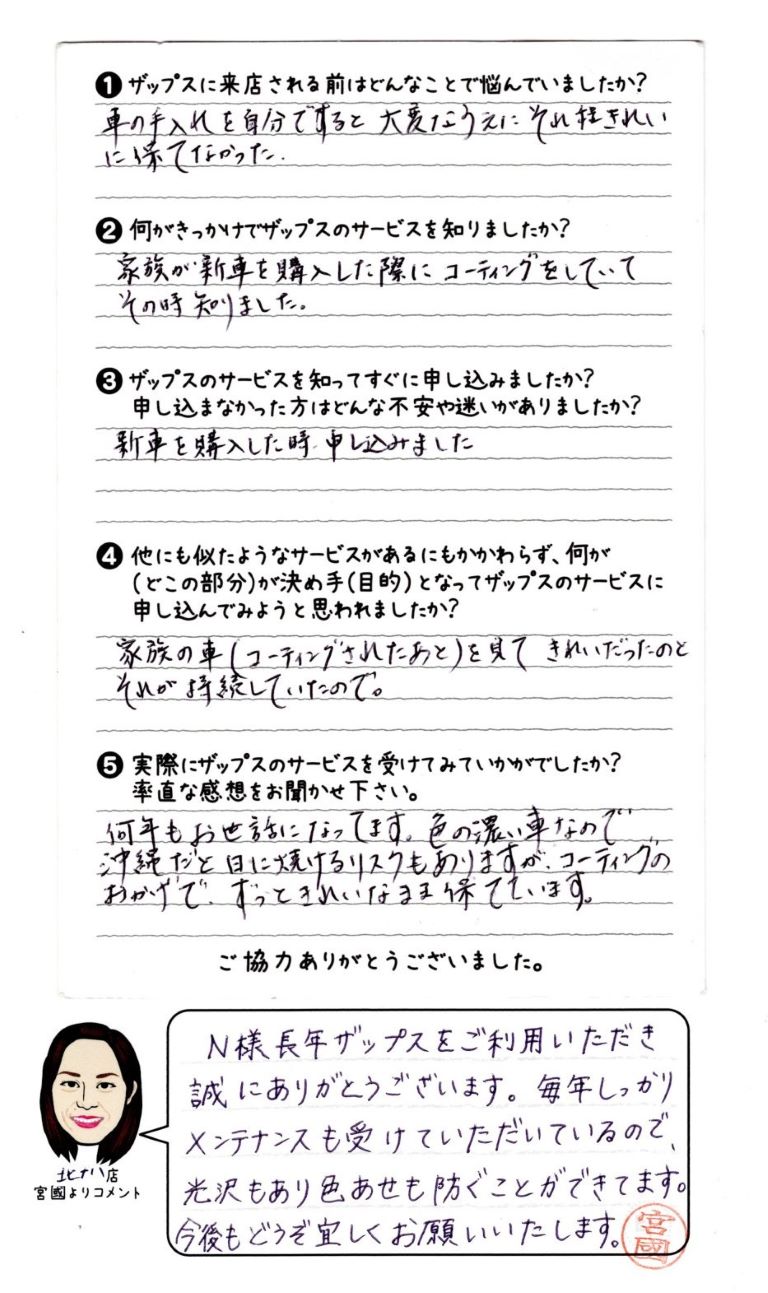 ❶ザップスに来店される前はどんなことで悩んでいましたか？
車の手入れを自分ですると大変なうえにそれ程きれい
に保てなかった.
❷何がきっかけでザップスのサービスを知りましたか？
家族が新車を購入した際にコーティングをしていて
その時知りました。
❸ザップスのサービスを知ってすぐに申し込みましたか？
申し込まなかった方はどんな不安や迷いがありましたか？
新車を購入した時.申し込みました
❹他にも似たようなサービスがあるにもかかわらず、何が
（どこの部分）が決め手（目的）となってザップスのサービスに
申し込んでみようと思われましたか？
家族の車(コーティングされたあと)を見て きれいだったのと
それが持続していたので。
❺実際にザップスのサービスを受けてみていかがでしたか？
率直な感想をお聞かせ下さい。
何年もお世話になってます。色の濃い車なので、
沖縄だと日に焼けるリスクもありますが、コーティングの
おかげで、ずっときれいなまま保てています。
ご協力ありがとうございました。
N様長年ザップスをご利用いただき
誠にありがとうございます。毎年しっかり
メンテナンスも受けていただいているので、
光沢もあり色あせも防ぐことができてます。
今後もどうぞ宜しくお願いいたします。
宮國
北ナハ店
宮國よりコメント